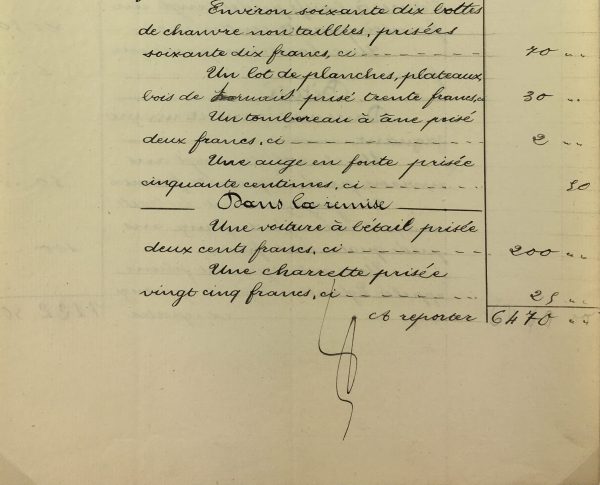 Environ soixante dix bottes
de chanvre non taillées, prisées
soixante dix francs, ci 70 " "
Un lot de planches, plateaux,
bois de prisé trente francs, ci 30 " "
Un tombereau à âne prisé
deux francs, ci 2 " "
Une auge en fonte prisée
cinquante centimes, ci 50
Dans la remise
Une voiture à bétail prisée
deux cents francs, ci 200 " "
Une charrette prisée
vingt cinq francs, ci 25 " "
A reporter 6470 " "